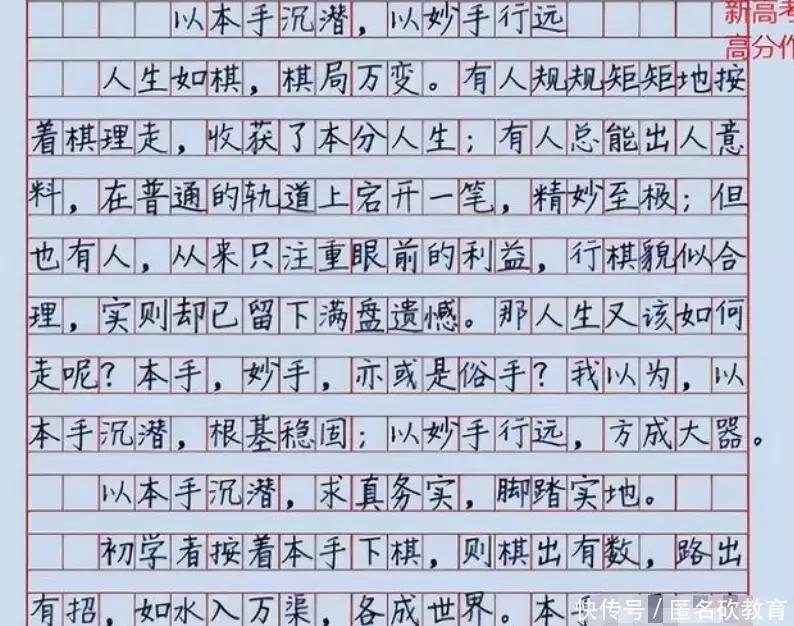 以本手沉潜，以妙手行远
新高考
高分作
人生如棋，棋局万变。有人规规矩矩地按
着棋理走，收获了本分人生；有人总能出人意
料，在普通的轨道上宕开一笔，精妙至极；但
也有人，从来只注重眼前的利益，行棋貌似合
理，实则却已留下满盘遗憾。那人生又该如何
走呢？本手，妙手，亦或是俗手？我以为，以
本手沉潜，根基稳固；以妙手行远，方成大器。
以本手沉潜，求真务实，脚踏实地。
初学者按着本手下棋，则棋出有数，路出
有招，如水入万渠，各成世界。本
快传号/匿名砍教育